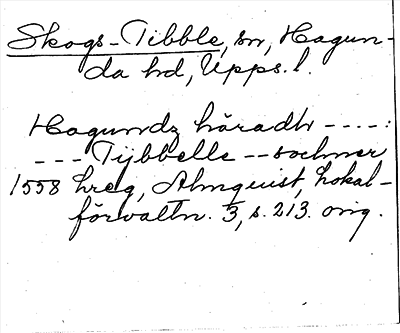 Skogs-Tibble, sn, Hagun-
da hd, Upps. l.
Hagundz häradtz ----:
--- Tijbbelle -- sochner
1558 hreg, Almquist, Lokal-
förvaltn. 3, s. 213. orig.